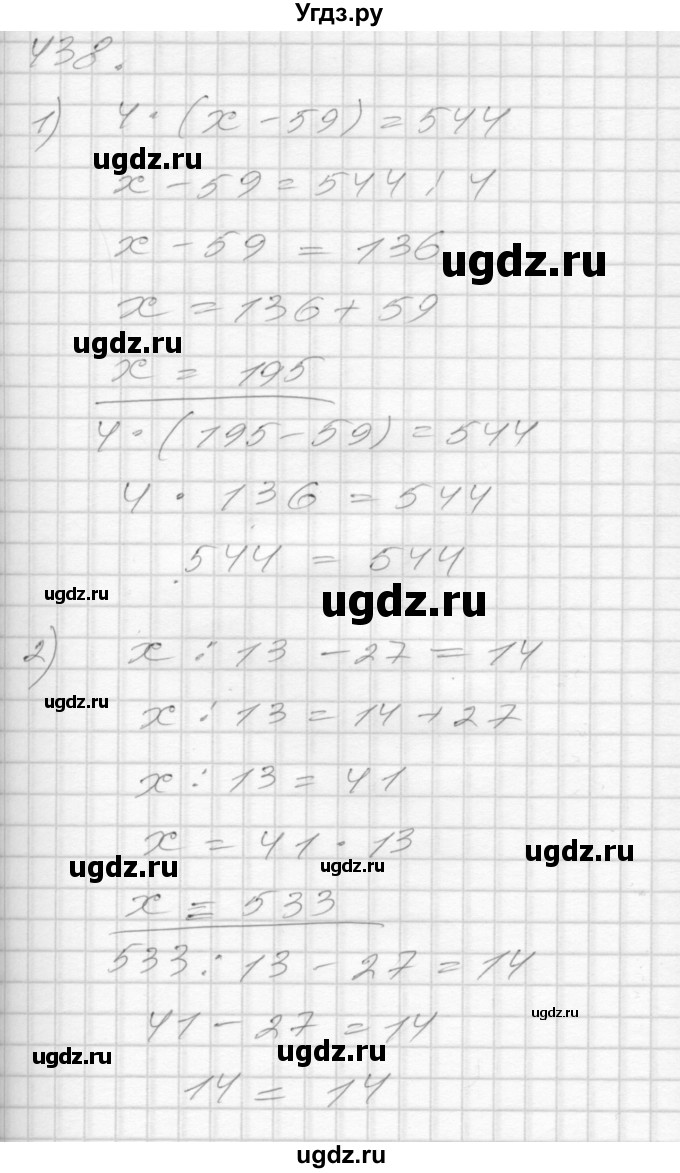 Угдз.ру
438.
1) 4 · (x - 59) = 544
ugdz.ru
x - 59 = 544 : 4
x - 59 = 136
ugdz.ru
x = 136 + 59
ugdz.ru
x = 195
4 · (195 - 59) = 544
4 · 136 = 544
544 = 544
ugdz.ru
ugdz.ru
2) x : 13 - 27 = 14
ugdz.ru
x : 13 = 14 + 27
x : 13 = 41
x = 41 · 13
ugdz.ru
ugdz.ru
ugdz.ru
x = 533
533 : 13 - 27 = 14
ugdz.ru
41 - 27 = 14
ugdz.ru
ugdz.ru
14 = 14
ugdz.ru